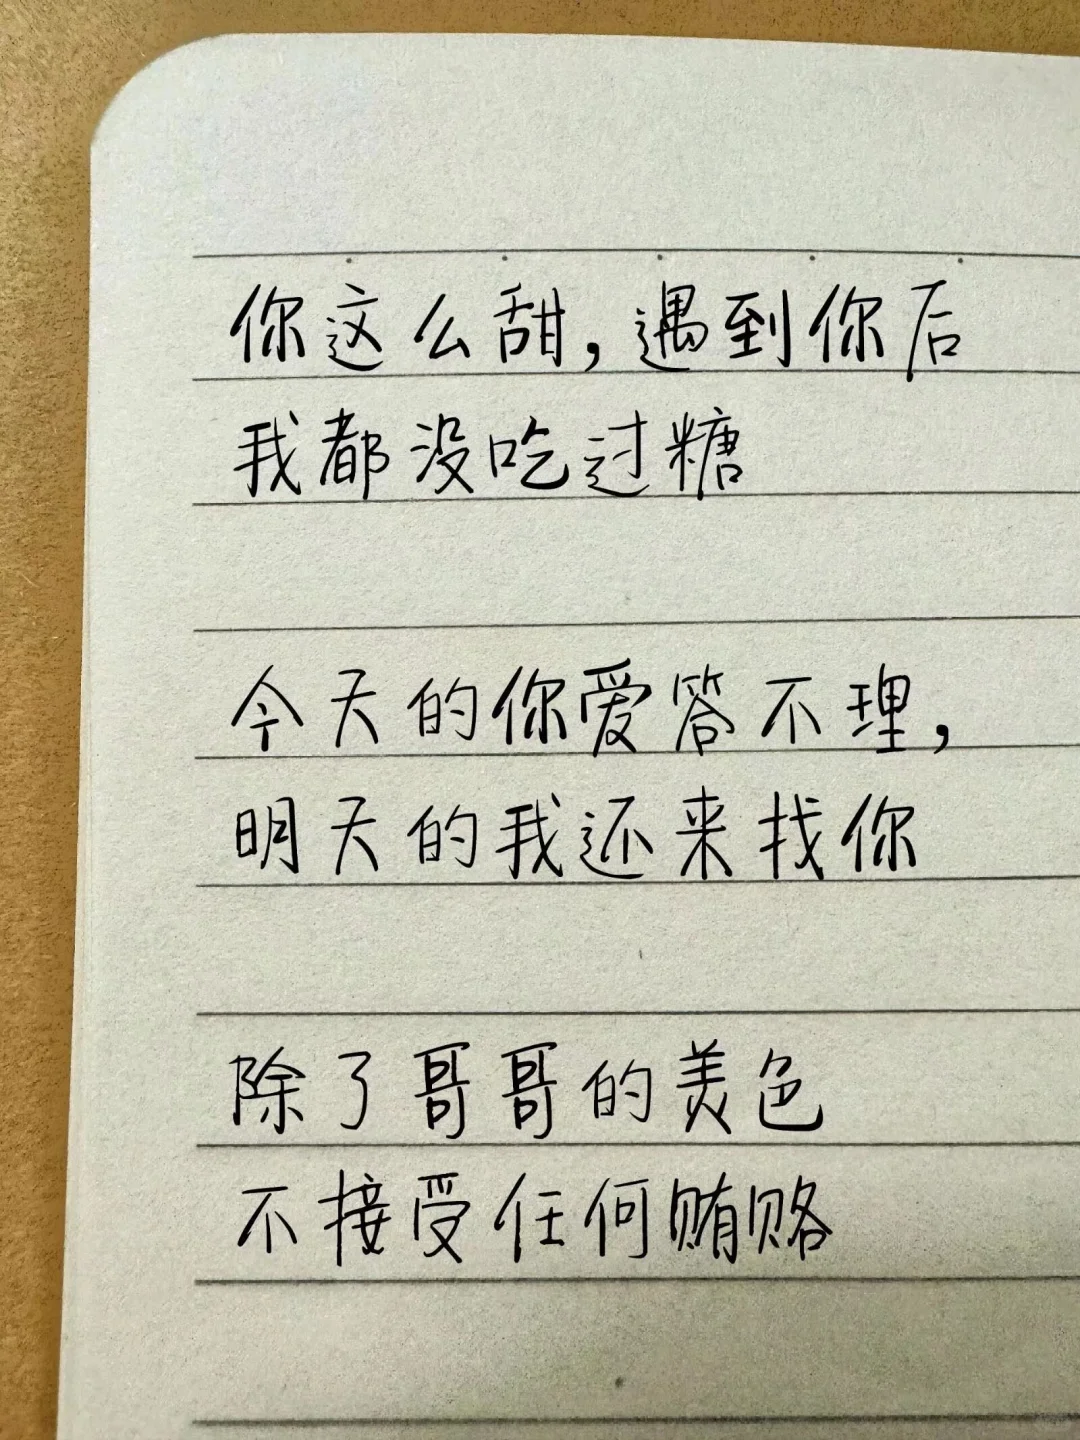 你这么甜,遇到你后
我都没吃过糖
今天的你爱答不理,
明天的我还来找你
除了哥哥的美色
不接受任何贿赂